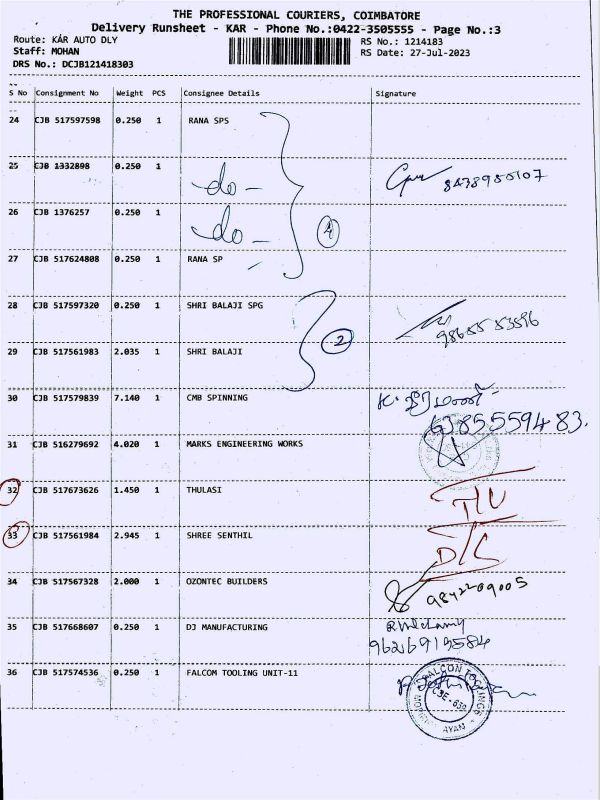 THE PROFESSIONAL COURIERS, COIMBATORE
Delivery Runsheet - KAR - Phone No.:0422-3505555 - Page No.:3
Route: KAR AUTO DLY
RS No.: 1214183
Staff: MOHAN
RS Date: 27-Jul-2023
DRS No.: DCJB121418303
S No Consignment No Weight PCS Consignee Details Signature
24 CJB 517597598 0.250 1 RANA SPS
25 CJB 1332898 0.250 1 -do- 8438980107
26 CJB 1376257 0.250 1 do- 4
27 CJB 517624808 0.250 1 RANA SP
28 CJB 517597320 0.250 1 SHRI BALAJI SPG
29 CJB 517561983 2.035 1 SHRI BALAJI 2
30 CJB 517579839 7.140 1 CMB SPINNING
6385559483.
31 CJB 516279692 4.020 1 MARKS ENGINEERING WORKS
32 CJB 517673626 1.450 1 THULASI
33 CJB 517561984 2.945 1 SHREE SENTHIL D/L
34 CJB 517567328 2.000 1 OZONTEC BUILDERS 9842209005
35 CJB 517668607 0.250 1 DJ MANUFACTURING
36 CJB 517574536 0.250 1 FALCOM TOOLING UNIT-11
FALCON TOOLINGS